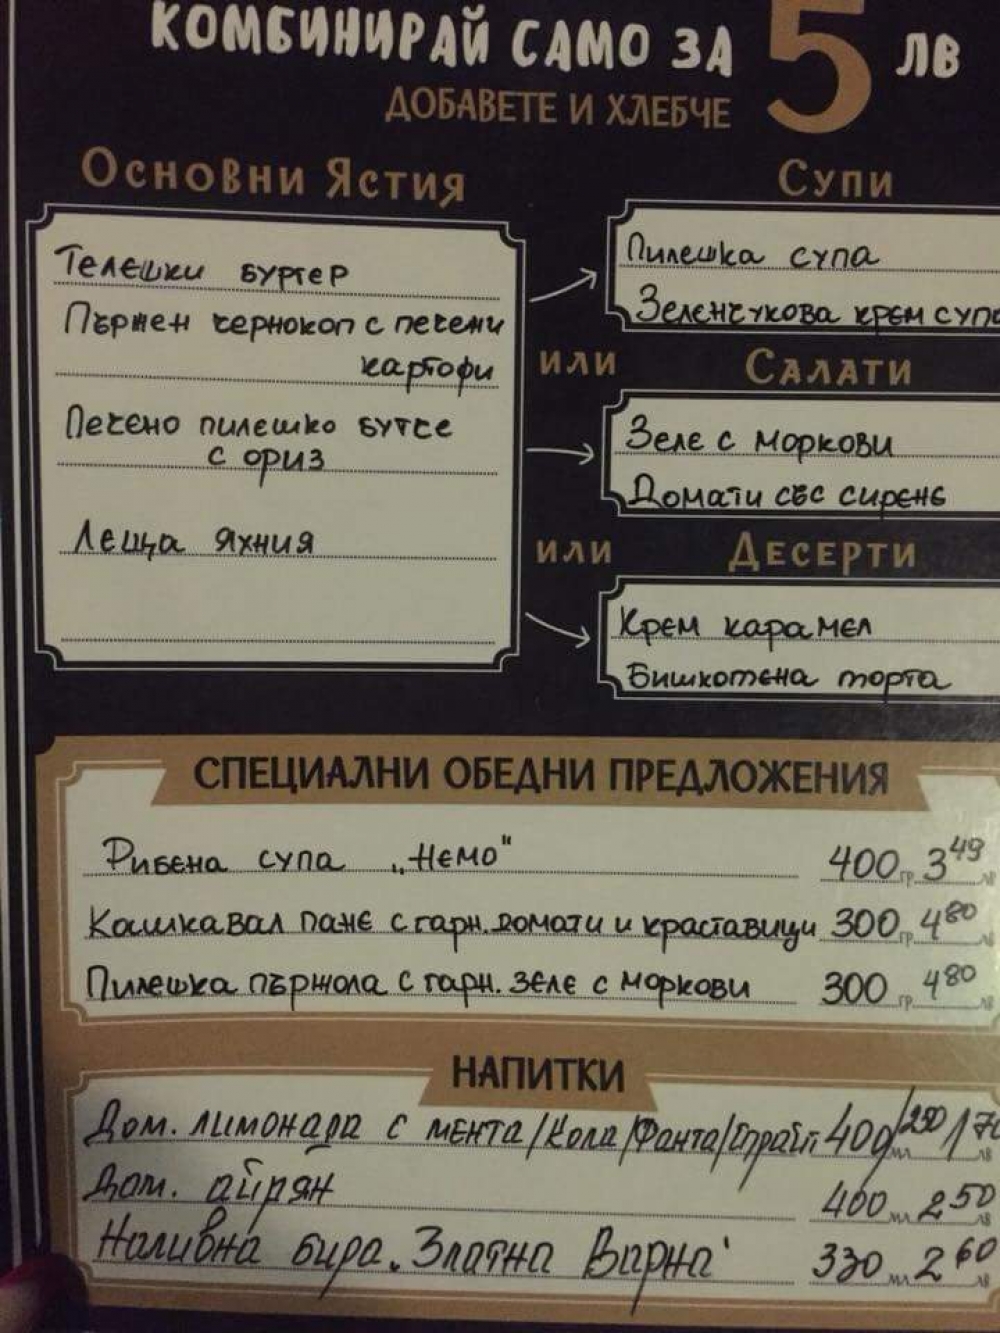 КОМБИНИРАЙ САМО ЗА 5 ЛВ
ДОБАВЕТЕ И ХЛЕБЧЕ
ОСНОВНИ ЯСТИЯ
Телешки бургер
Пържен чернокоп с печени
картофи
Печено пилешко бутче
с ориз
Леща яхния
СУПИ
Пилешка супа
Зеленчукова крем супа
ИЛИ
САЛАТИ
Зеле с моркови
Домати със сирене
ИЛИ
ДЕСЕРТИ
Крем карамел
Бишкотена торта
СПЕЦИАЛНИ ОБЕДНИ ПРЕДЛОЖЕНИЯ
Рибена супа „Немо" 400 гр. 3 49 лв
Кашкавал пане с гарн. домати и краставици 300 гр. 4 80 лв
Пилешка пържола с гарн. зеле с моркови 300 гр. 4 80 лв
НАПИТКИ
Дом. лимонада с мента/Кола/Фанта/Спрайт 400/250 мл 1 70 лв
Дом. айрян 400 мл 2 50 лв
Наливна бира „Златна Варна" 330 мл 2 60 лв